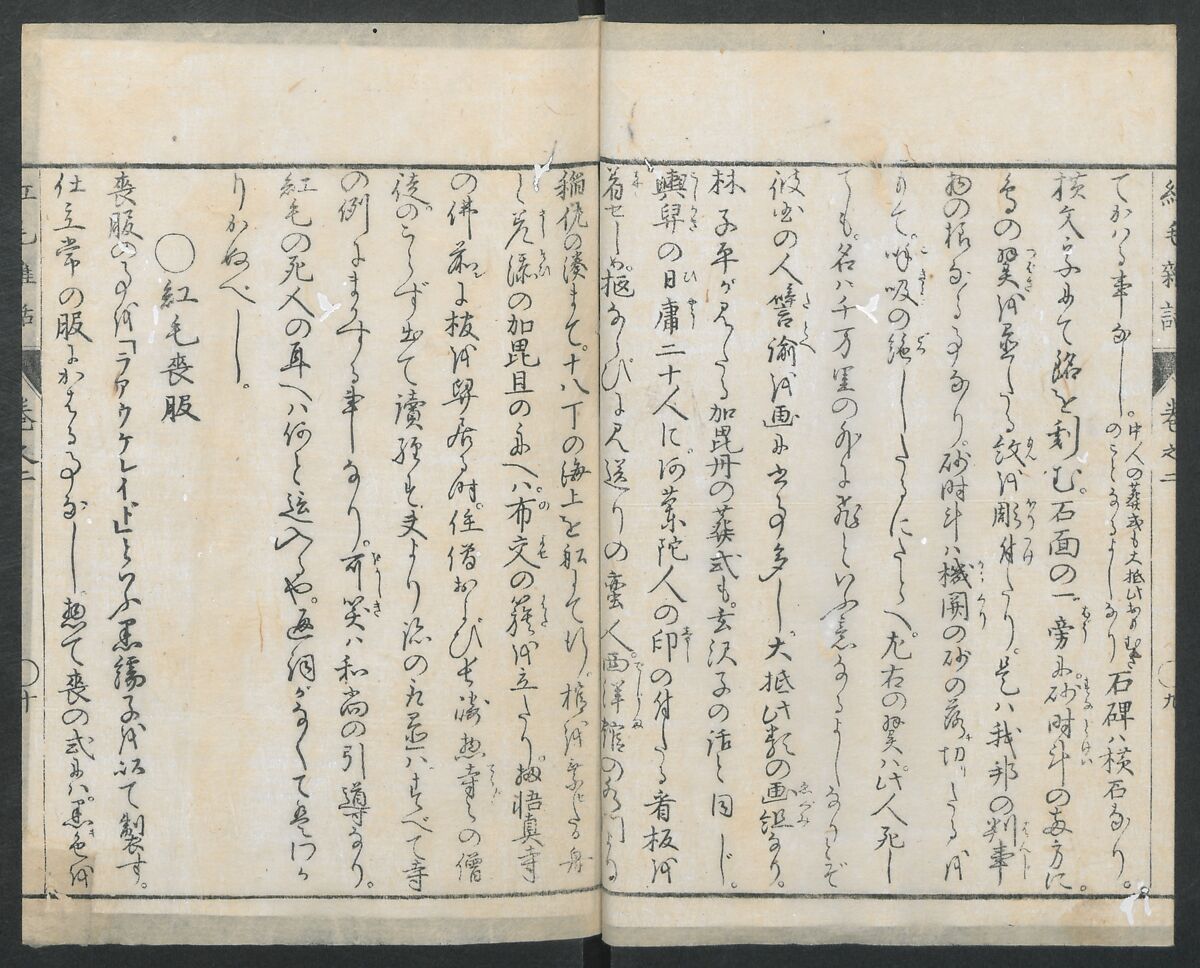 紅毛雜話 巻之二 〇九
てかはる事なし。中人の葬式も大抵此おもむき
のことなるよしなり 石碑ハ横石なり。
横文字にて銘を刻む。石面の一旁に砂時斗の両方に。
鳥の翼を並たる紋を彫付たり。是ハ我邦の判事
物の根なる事なり。砂時斗ハ機関の砂の落切たるを
もて。呼吸の絶したるにたとへ。左右の翼ハ此人死し
ても。名ハ千万里の外に飛といふ意なるよしなりとぞ
彼国の人譬諭を画に書事多し。大抵此類の画組なり。
林子平が見たる加毘丹の葬式も。玄沢子の話と同じ。
輿舁の日庸二十人に。阿蘭陀人の印の付たる看板を
着せしめ。柩ならびに見送りの蛮人。西洋館の水門より
稲佐の湊まで。十八丁の海上を船にて行。棺を乗せたる舟
と先添の加毘丹の舟へハ。布交の籏を立たり。扨悟真寺
の佛前に柩を舁居る時。住僧および長崎惣寺々の僧
徒。のこらず出て讀經す。夫より跡の取置ハ。すべて寺
の例にまかする事なり。可笑ハ和尚の引導なり。
紅毛の死人の耳へハ何と這入るや。返詞がなくて是ハわか
りかぬべし。
〇紅毛喪服
喪服の事を「ラアウケレイド」といふ黒繻子を以て製す。
仕立常の服にかはる事なし。惣て喪の式にハ。黒色を
紅毛雜話 巻之二 〇十